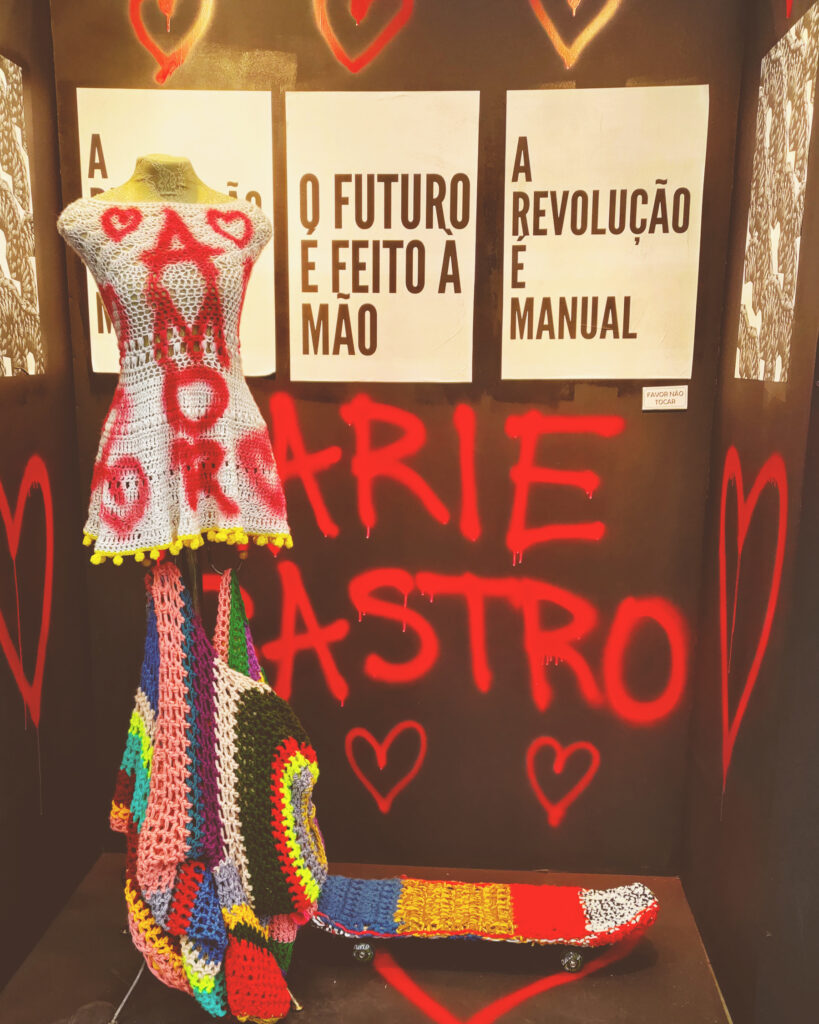 A
O FUTURO
É FEITO À
MÃO
A
REVOLUÇÃO
É
MANUAL
FAVOR NÃO
TOCAR
AMOR
ARIE
CASTRO